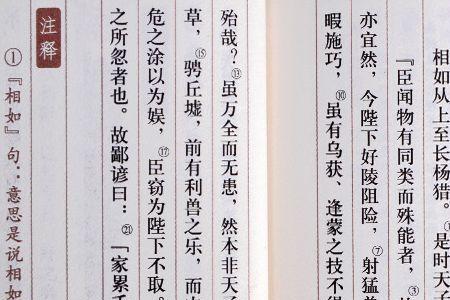 相如从上至长杨猎。⑥是时天子
『臣闻物有同类而殊能者，
亦宜然，今陛下好陵阻险，⑦射猛兽
暇施巧，⑩虽有乌获、逢蒙之技不得
殆哉？⑬虽万全而无患，然本非天子
草，⑮骋丘墟，前有利兽之乐，而内
危之涂以为娱，⑰臣窃为陛下不取。
之所忽者也。故鄙谚曰：㉑「家累千
注释
①『相如』句：意思是说相如